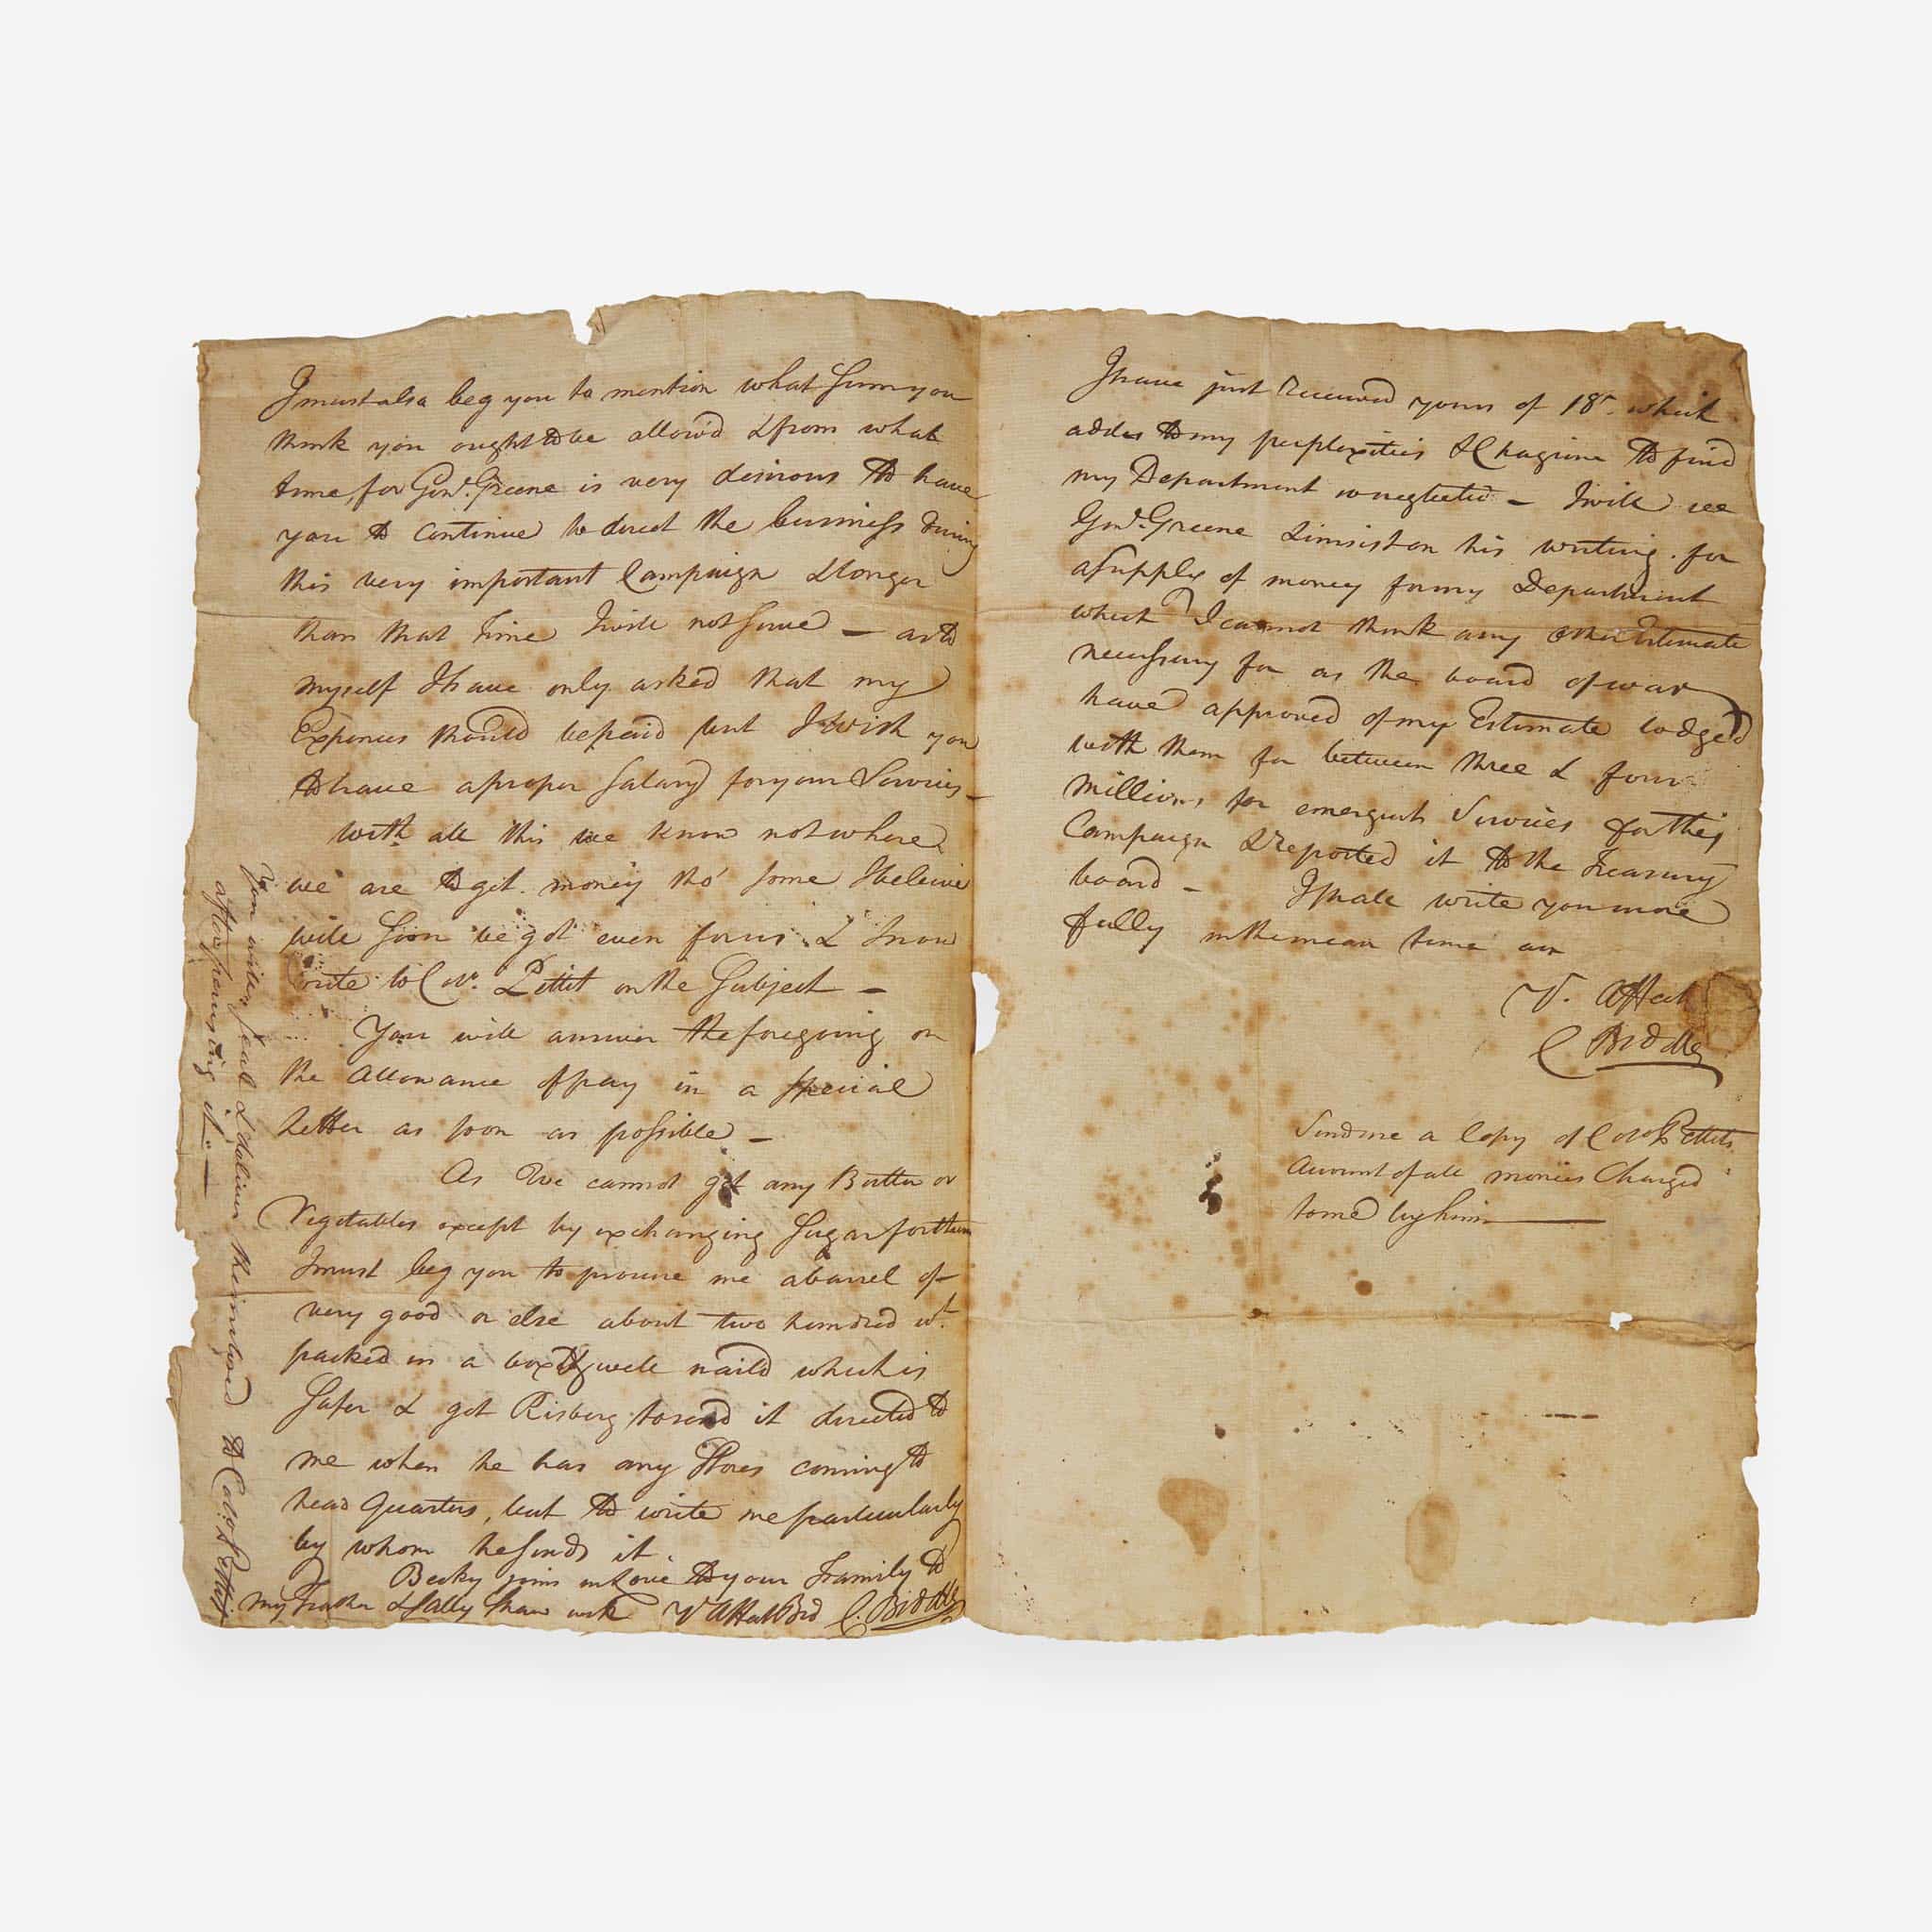 I must also beg you to mention what Sum you
think you ought to be allow'd & from what
time, for Genl. Greene is very desirous to have
you to continue to direct the business during
this very important Campaign & longer
than that Time I will not Serve — as to
myself I have only asked that my
Expences should be paid but I wish you
to have a proper Salary for your Services —
with all this we know not where
we are to get money tho' some I beleive
will soon be got even for us & I now
write to Col. Pettit on the Subject —
You will answer the foregoing on
the Allowance of pay in a special
Letter as soon as possible —
As we cannot get any Butter or
Vegetables except by exchanging Sugar for them
I must beg you to procure me a barrel of
very good or else about two hundred wt.
packed in a box well naild which is
Safer & get Risberg to send it directed to
me when he has any Stores coming to
head Quarters, but to write me particularly
by whom he sends it
Becky joins in Love to your Family to
my Father & Sally Shaw with Yr Affect Bro C. Biddle
You will seal & deliver the inclosed to Colo. Pettit
after perusing it. —
I have just received yours of 18th. which
adds to my perplexities & Chagrine to find
my Department so neglected — I will see
Genl. Greene & insist on his writing for
a Supply of money for my Department
which I cannot think any other Estimate
necessary for as the board of war
have approved of my Estimate lodged
with them for between three & four
Millions for emergent Services for this
Campaign & reported it to the Treasury
board — I shall write you more
fully in the mean time am
Yr. Affect
C Biddle
Send me a Copy of Colo Pettits
Account of all monies Charged
to me by him —